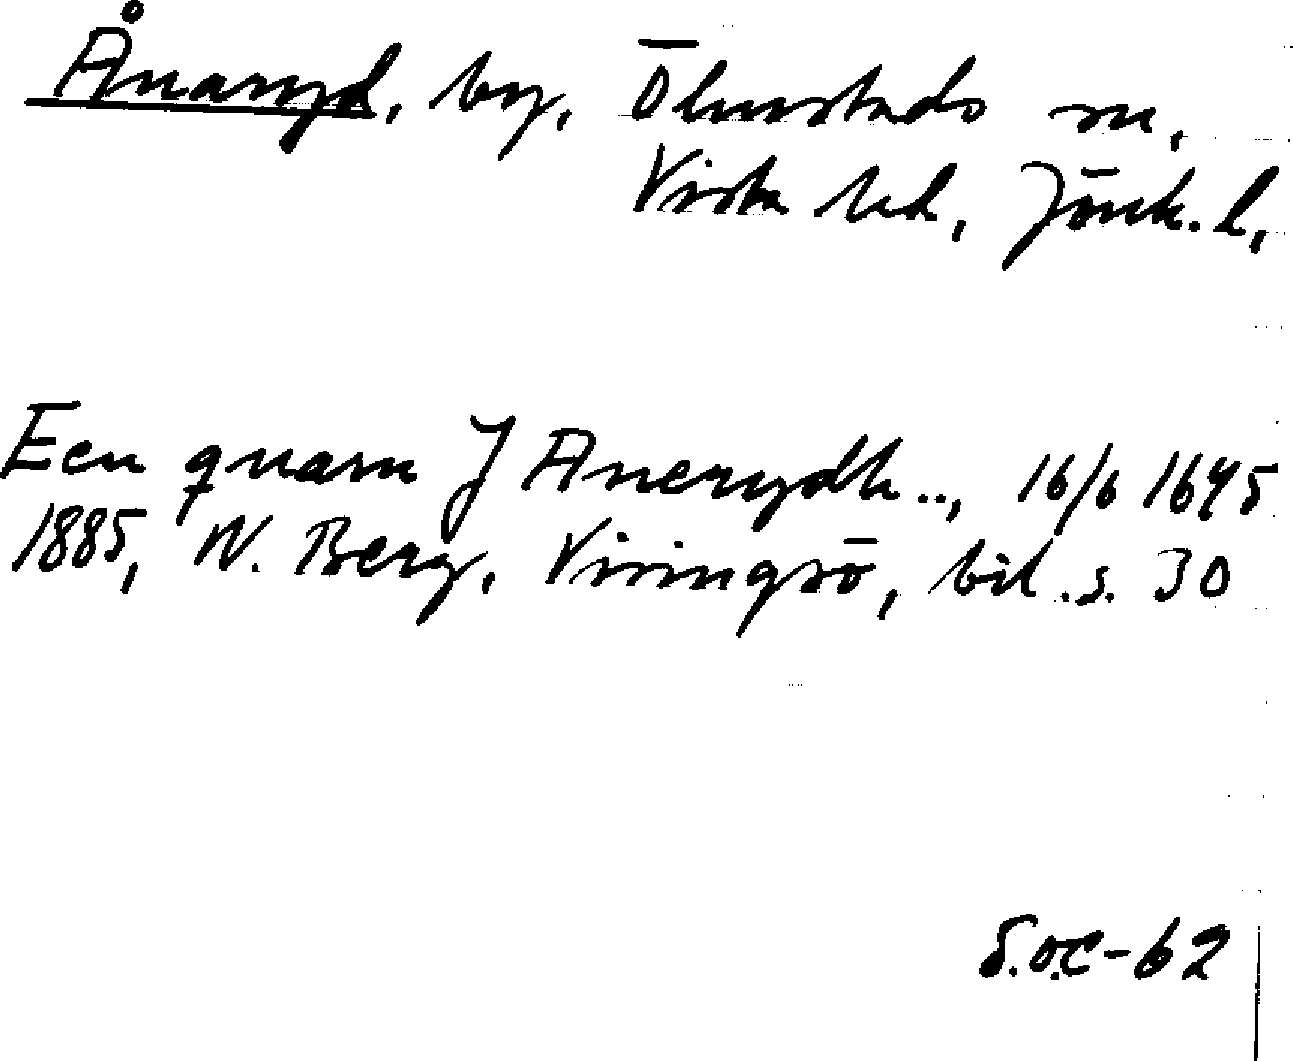 Ånaryd, by, Ölmstads sn,
Vista hd, Jönk. l,
Een quarn J Anerydh.., 16/6 1645
1885, W. Berg, Visingsö, bil. s. 30
S.O.C-62